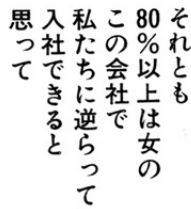 それとも
80%以上は女の
この会社で
私たちに逆らって
入社できると
思って